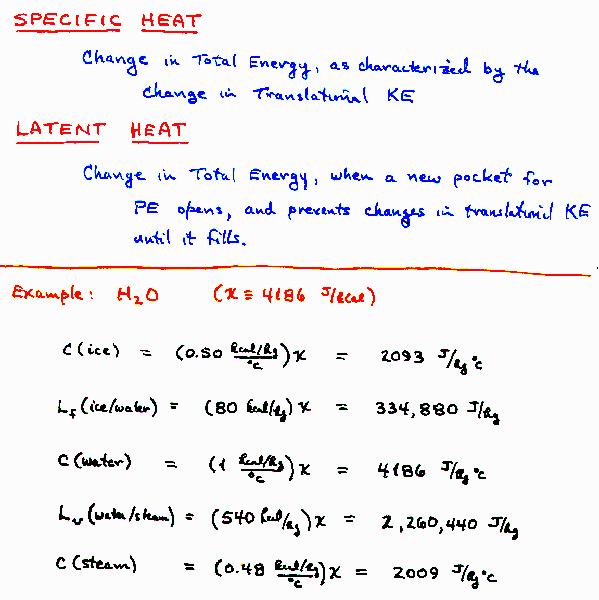 SPECIFIC HEAT
Change in Total Energy, as characterized by the
change in Translational KE
LATENT HEAT
Change in Total Energy, when a new pocket for
PE opens, and prevents changes in translational KE
until it fills.
Example: H₂O (x ≡ 4186 J/kcal)
C (ice) = (0.50 kcal/kg/°C) x = 2093 J/kg°C
L_f (ice/water) = (80 kcal/kg) x = 334,880 J/kg
C (water) = (1 kcal/kg/°C) x = 4186 J/kg°C
L_v (water/steam) = (540 kcal/kg) x = 2,260,440 J/kg
C (steam) = (0.48 kcal/kg/°C) x = 2009 J/kg°C